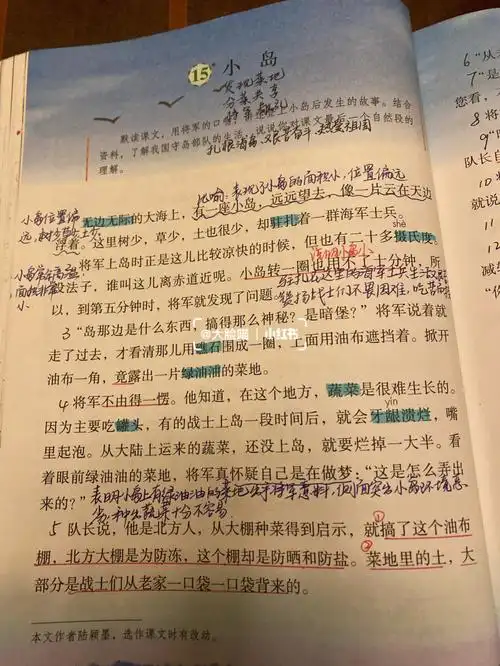 15* 小岛
发现菜地
分菜共享
将军敬礼
默读课文,用将军的口 小岛后发生的故事。结合
资料,了解我国守岛部队的生活,说说你对课文最后一个自然段的
理解。
扎根海岛、艰苦奋斗、热爱祖国
比喻:表现了小岛的面积小,位置偏远
小岛位置偏
远,树少草少土少
无边无际的大海上,有一座小岛,远远望去,像一片云在天边
浮着。这里树少,草少,土也很少,却驻扎着一群海军士兵。
shè
将军上岛时正是这儿比较凉快的时候,但也有二十多摄氏度。
没法子,谁叫这儿离赤道近呢。小岛转一圈也用不了十分钟,所
以,到第五分钟时,将军就发现了问题。
3 “岛那边是什么东西,搞得那么神秘?是暗堡?”将军说着就
走了过去,才看清那儿用礁石围成一圈,上面用油布遮挡着。掀开
油布一角,竟露出一片绿油油的菜地。
4 将军不由得一愣。他知道,在这个地方,蔬菜是很难生长的。
yín
因为主要吃罐头,有的战士上岛一段时间后,就会牙龈溃烂,嘴
里起泡。从大陆上运来的蔬菜,还没上岛,就要烂掉一大半。看
着眼前绿油油的菜地,将军真怀疑自己是在做梦:“这是怎么弄出
来的?”
5 队长说,他是北方人,从大棚种菜得到启示,就搞了这个油布
棚,北方大棚是为防冻,这个棚却是防晒和防盐。菜地里的土,大
部分是战士们从老家一口袋一口袋背来的。
本文作者陆颖墨,选作课文时有改动。
@大脸喵 小红书
6 “从
7 “是
您看,
8 将
队长自
就说: